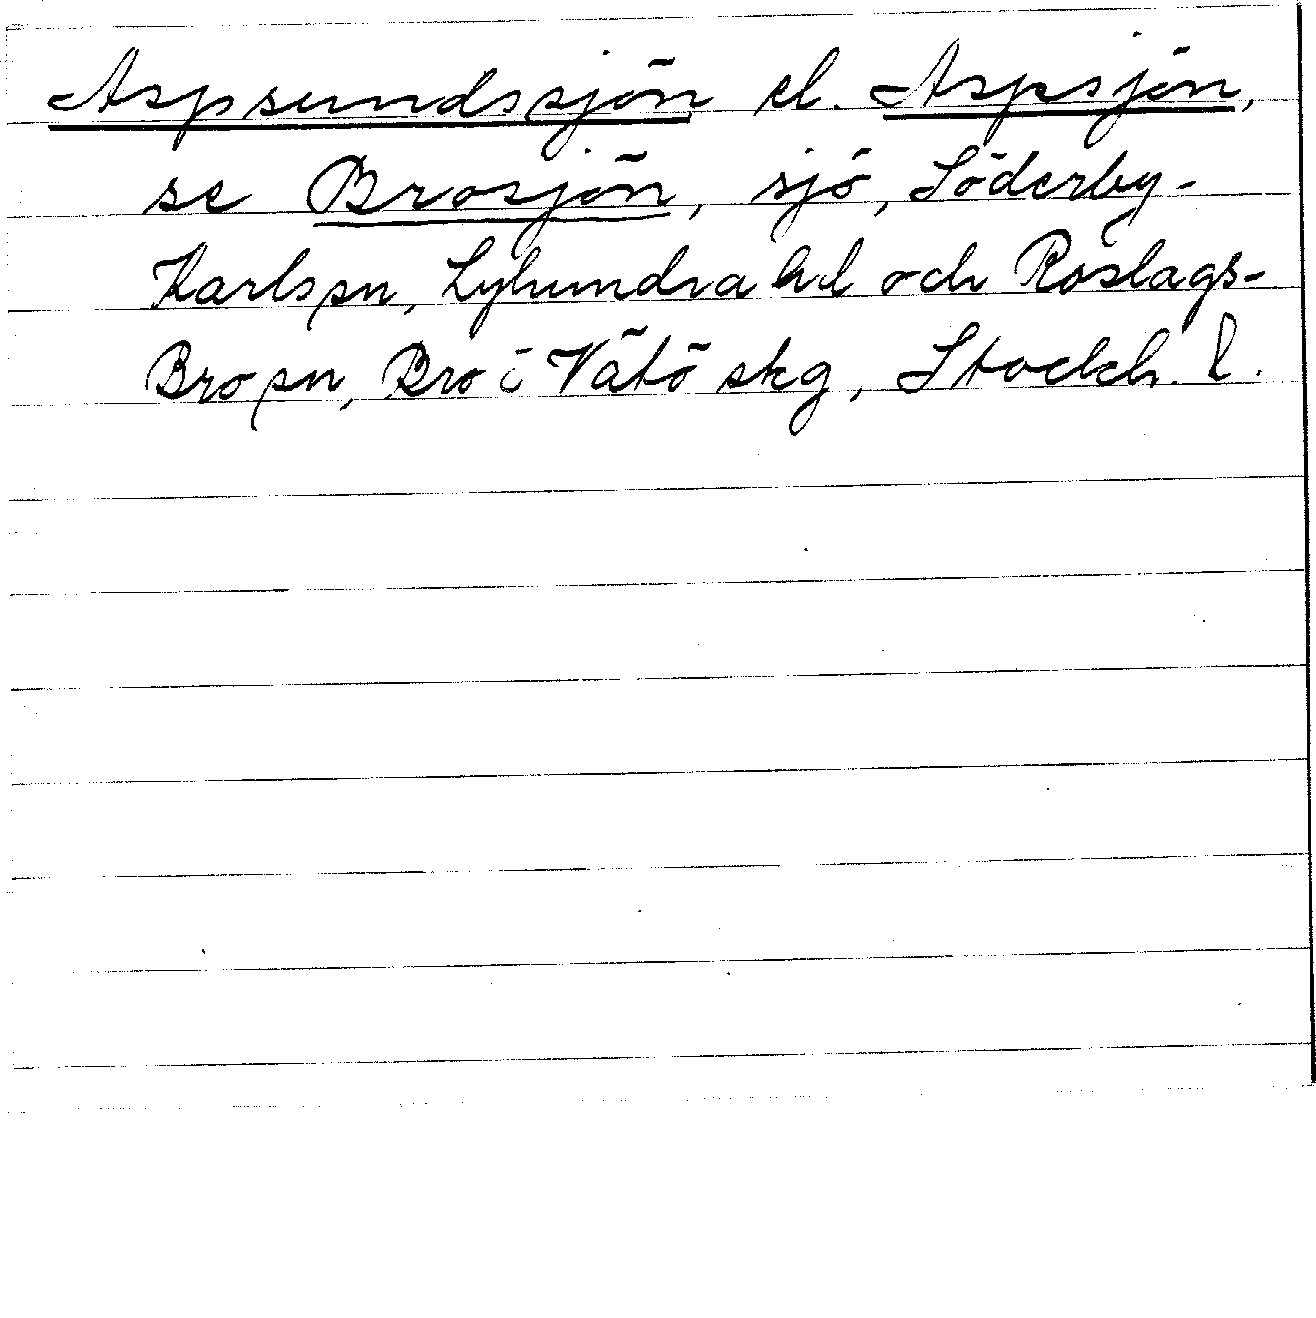 Aspsundssjön el. Aspsjön,
se Brosjön, sjö, Söderby-
Karls sn, Lyhundra hd och Roslags-
Bro sn, Bro o Vätö skg, Stockh. l.